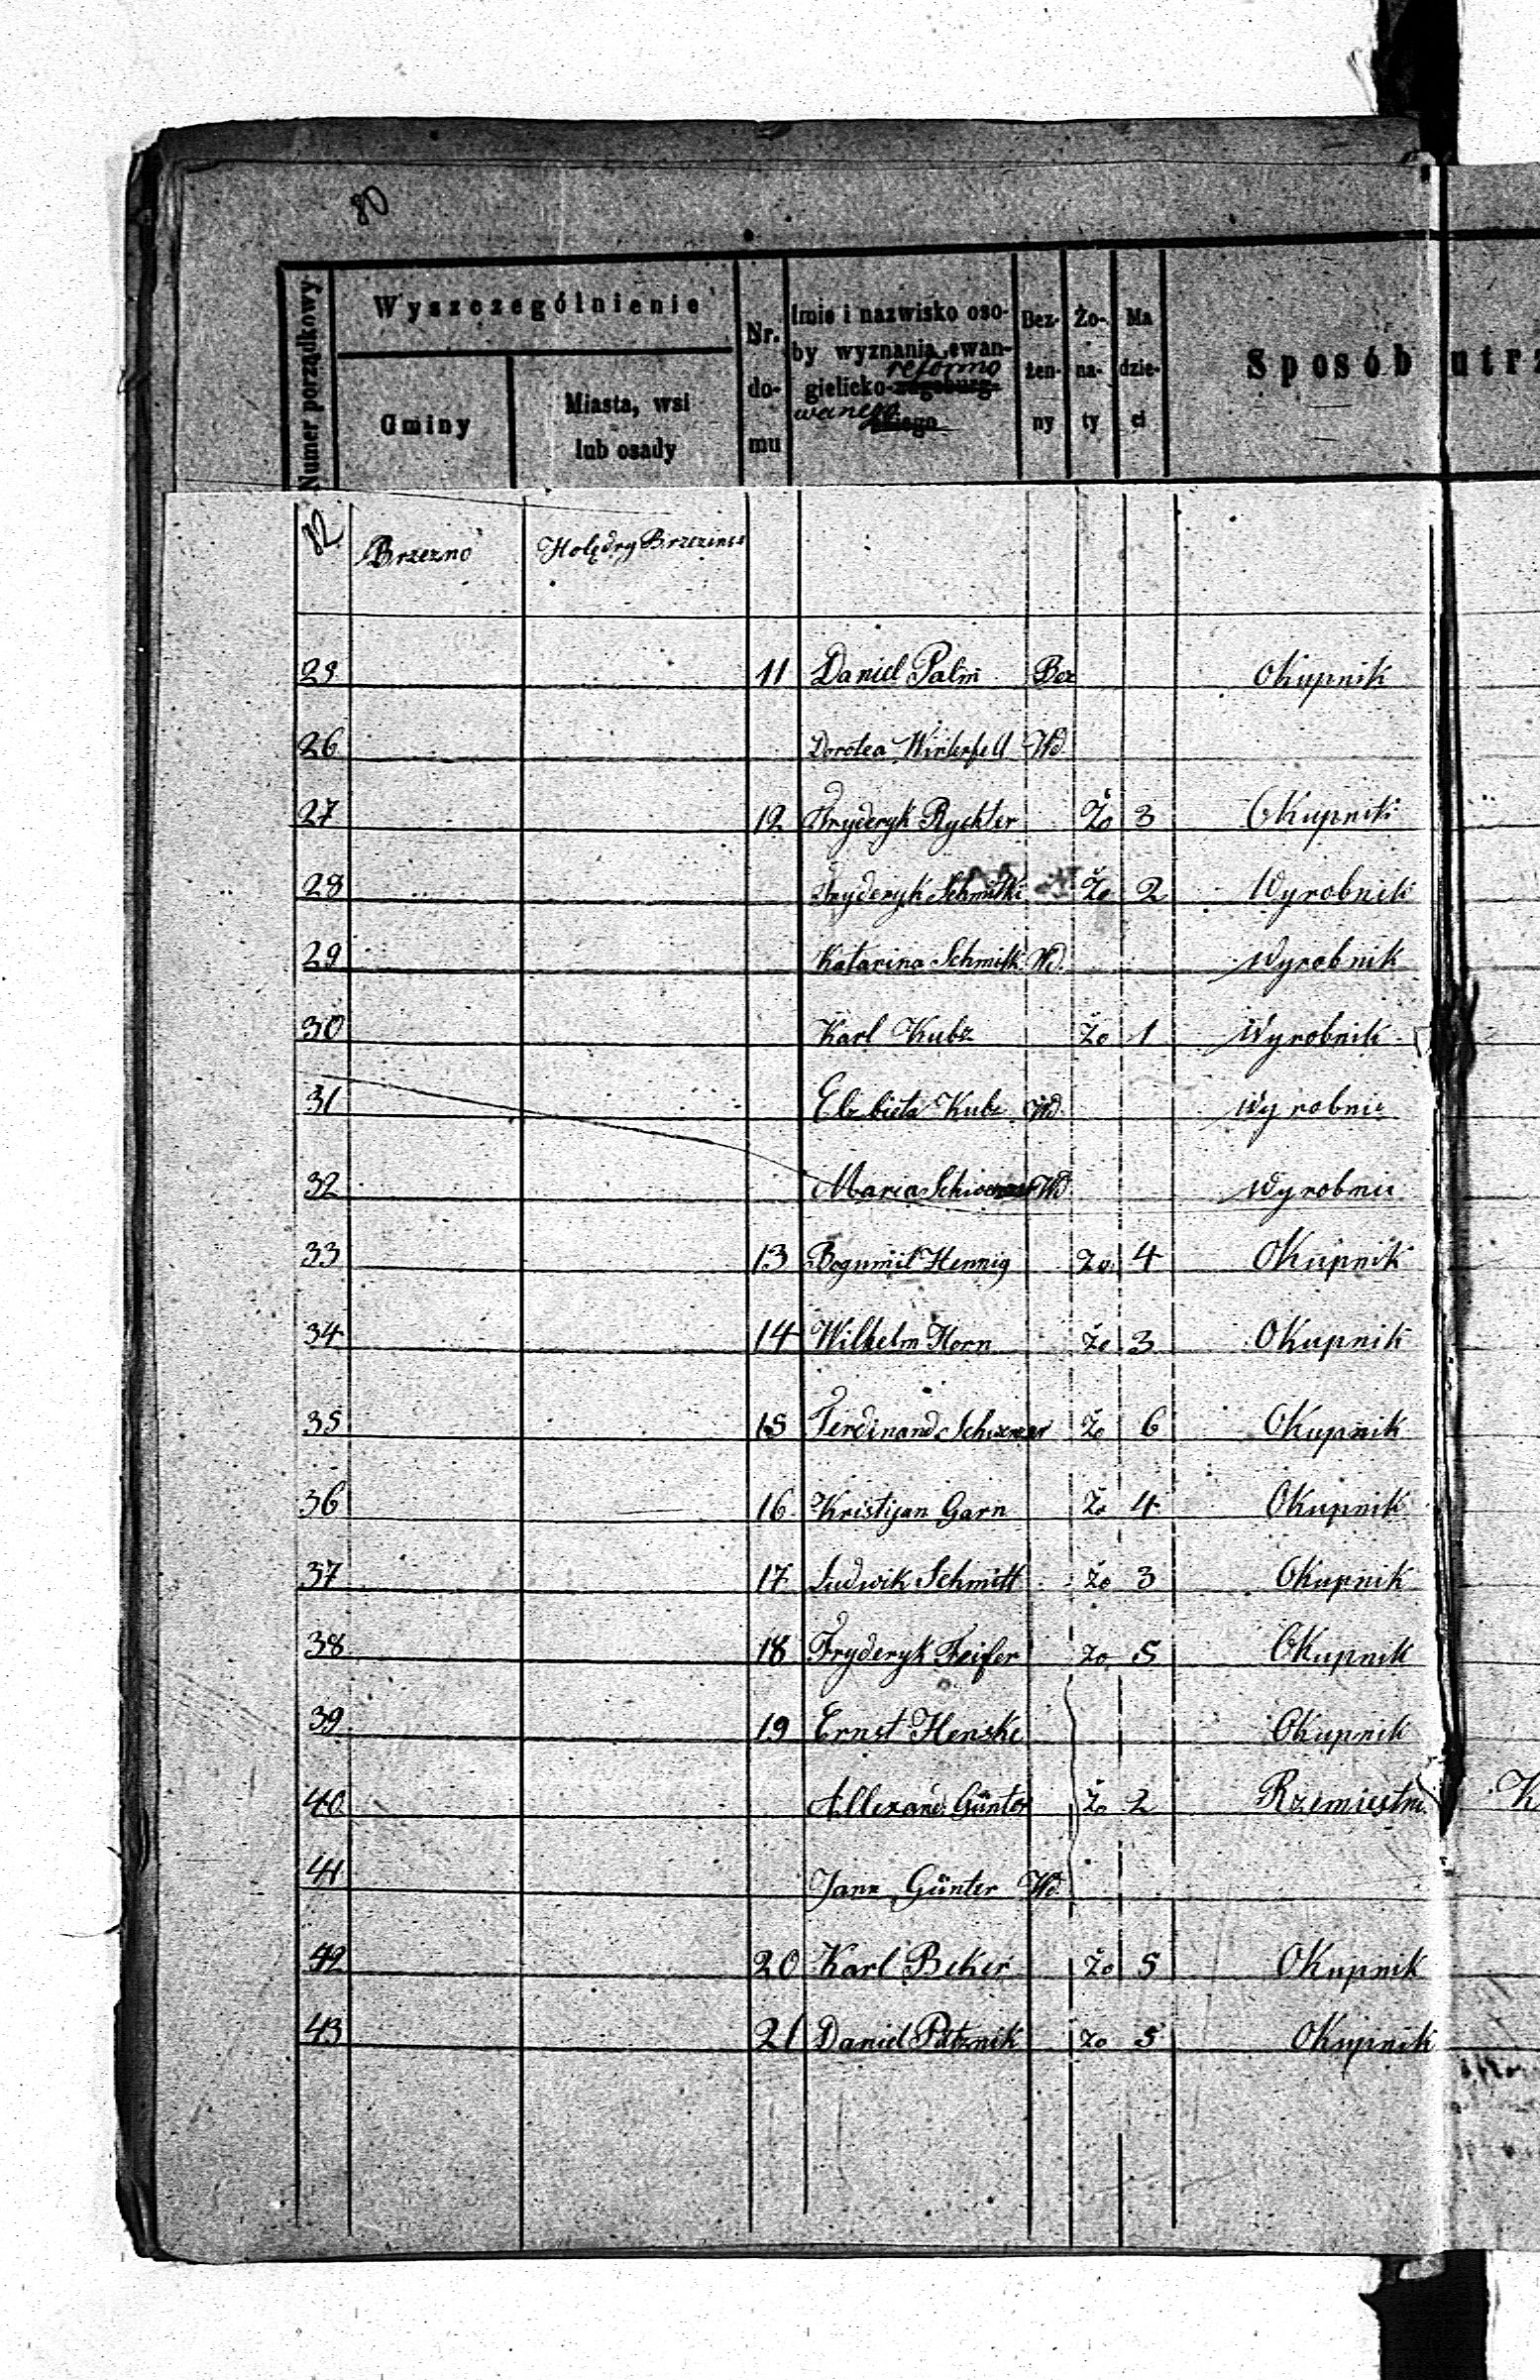 80
Numer porządkowy
Wyszczególnienie
Gminy
Miasta, wsi
lub osady
Nr.
do-
mu
Imie i nazwisko oso-
by wyznania ewan-
reformo
gielicko-augsburg-
wanego
skiego
Bez-
żen-
ny
Żo-
na-
ty
Ma
dzie-
ci
Sposób utrz
Brzezno Holędry
11 Daniel Palm Bez Okupnik
26 Dorotea Winterfell Wd.
27 12 Fryderyk Rychter Żo 3 Okupnik
28 Fryderyk Żo 2 Wyrobnik
29 Katarina Wd. Wyrobnik
30 Karl Kubz Żo 1 Wyrobnik
31 Elzbieta Kubz Wd. Wyrobni
32 Maria Wd Wyrobni
33 13 Bogumil Hennig Żo 4 Okupnik
34 14 Wilhelm Horn Żo 3 Okupnik
35 15 Ferdinand Żo 6 Okupnik
36 16 Kristijan Garn Żo 4 Okupnik
37 17 Ludwik Schmitt Żo 3 Okupnik
38 18 Fryderyk Feifer Żo 5 Okupnik
39 19 Ernst Henske Okupnik
40 Günter Żo 2 K
41 Günter Wd.
42 20 Karl Beker Żo 5 Okupnik
43 21 Daniel Żo 5 Okupnik